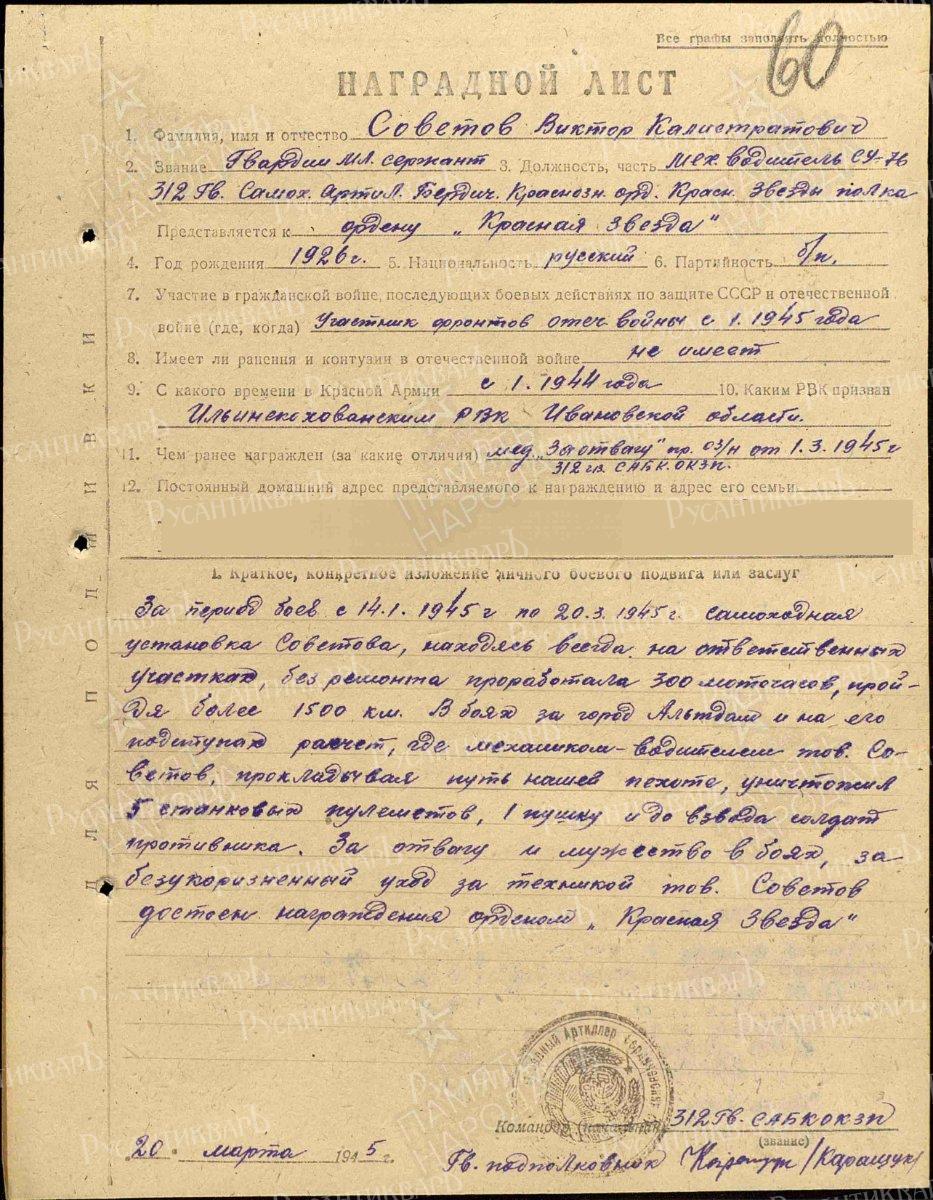 Все графы заполнять полностью
60
НАГРАДНОЙ ЛИСТ
1. Фамилия, имя и отчество Советов Виктор Калистратович
2. Звание Гвардии мл. сержант 3. Должность, часть мех. водитель СУ-76
312 Гв. Самох. Артил. Бердич. Краснозн. орд. Красн. Звезды полка
Представляется к ордену „Красная Звезда"
4. Год рождения 1926 г. 5. Национальность русский 6. Партийность б/п.
7. Участие в гражданской войне, последующих боевых действиях по защите СССР и отечественной
войне (где, когда) Участник фронтов отеч войны с 1.1945 года
8. Имеет ли ранения и контузии в отечественной войне не имеет
9. С какого времени в Красной Армии с 1.1944 года 10. Каким РВК призван
Ильинскохованским РВК Ивановской области.
11. Чем ранее награжден (за какие отличия) мед. „За отвагу" пр. 03/н от 1.3.1945 г
312 гв. САБКОКЗП.
12. Постоянный домашний адрес представляемого к награждению и адрес его семьи
I. Краткое, конкретное изложение личного боевого подвига или заслуг
За период боев с 14.1.1945 г по 20.3.1945 г. самоходная
установка Советова, находясь всегда на ответственных
участках, без ремонта проработала 300 моточасов, прой-
дя более 1500 км. В боях за город Альтдам и на его
подступах расчет, где механиком-водителем тов. Со-
ветов, прокладывая путь нашей пехоте, уничтожил
5 станковых пулеметов, 1 пушку и до взвода солдат
противника. За отвагу и мужество в боях, за
безукоризненный уход за техникой тов. Советов
достоен награждения орденом „Красная Звезда"
Командир (начальник) 312 Гв. САБКОКЗП
(звание)
20 марта 1945 г. Гв. подполковник /Каращук/
ДЛЯ ПОДШИВКИ
РусантикварЪ
ПАМЯТЬ НАРОДА